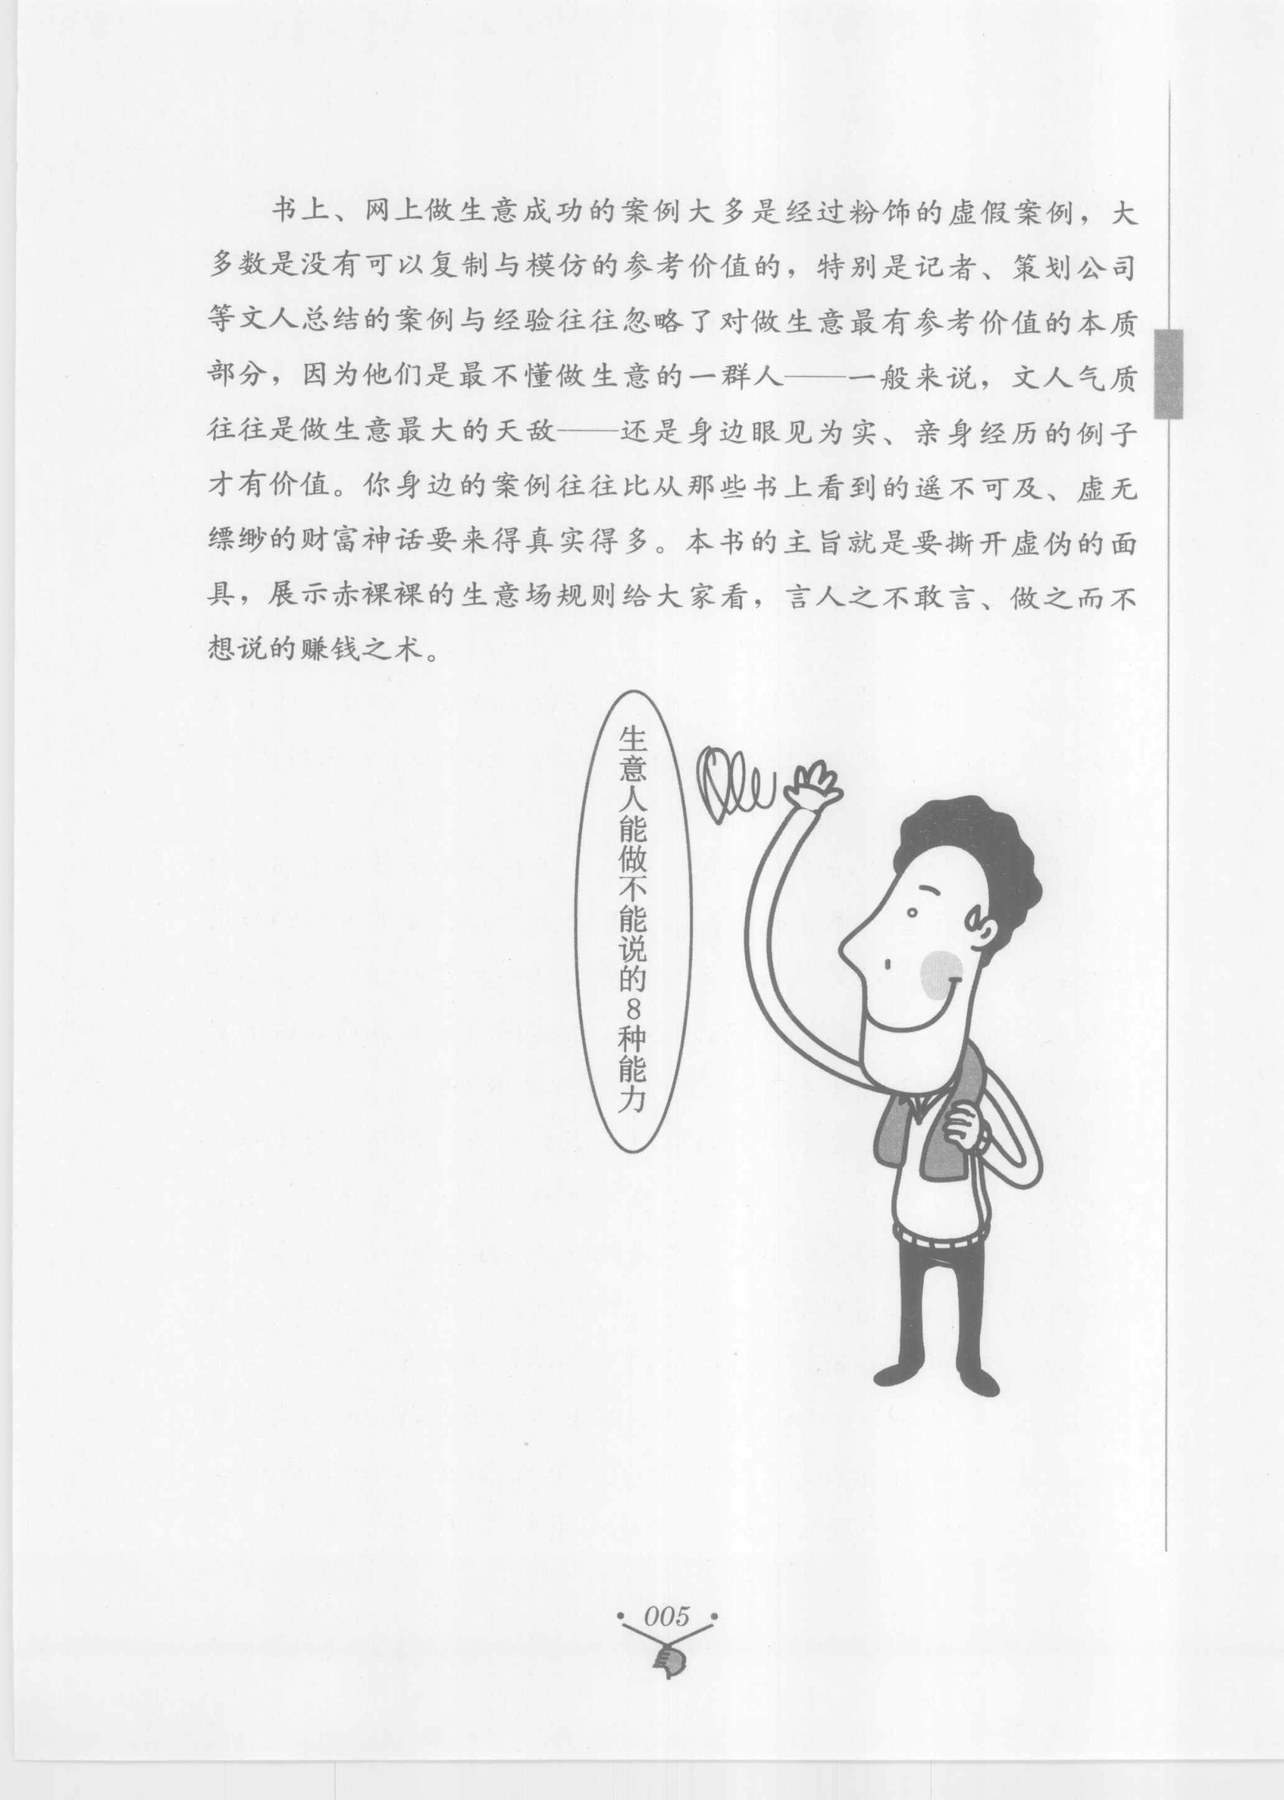 书上、网上做生意成功的案例大多是经过粉饰的虚假案例，大
多数是没有可以复制与模仿的参考价值的，特别是记者、策划公司
等文人总结的案例与经验往往忽略了对做生意最有参考价值的本质
部分，因为他们是最不懂做生意的一群人——一般来说，文人气质
往往是做生意最大的天敌——还是身边眼见为实、亲身经历的例子
才有价值。你身边的案例往往比从那些书上看到的遥不可及、虚无
缥缈的财富神话要来得真实得多。本书的主旨就是要撕开虚伪的面
具，展示赤裸裸的生意场规则给大家看，言人之不敢言、做之而不
想说的赚钱之术。
生意人能做不能说的8种能力
005